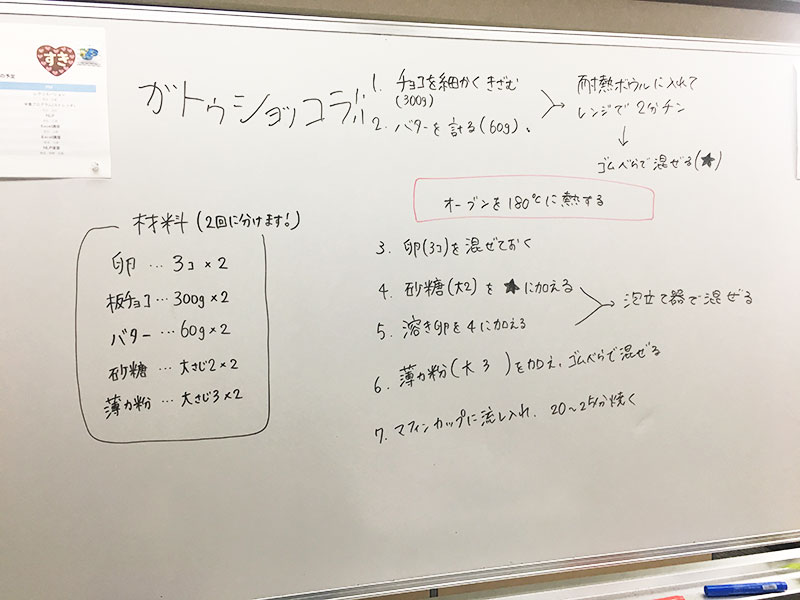 すき
の予定
ガトゥショッコラ!!
1. チョコを細かくきざむ
(300g)
2. バターを計る(60g)。
耐熱ボウルに入れて
レンジで2分チン
↓
ゴムべらで混ぜる(★)
オーブンを180℃に熱する
材料(2回に分けます!)
卵…3コ×2
板チョコ…300g×2
バター…60g×2
砂糖…大さじ2×2
薄力粉…大さじ3×2
3. 卵(3コ)を混ぜておく
4. 砂糖(大2)を★に加える
5. 溶き卵を4に加える
泡立て器で混ぜる
6. 薄力粉(大3)を加え、ゴムべらで混ぜる
7. マフィンカップに流し入れ、20〜25分焼く